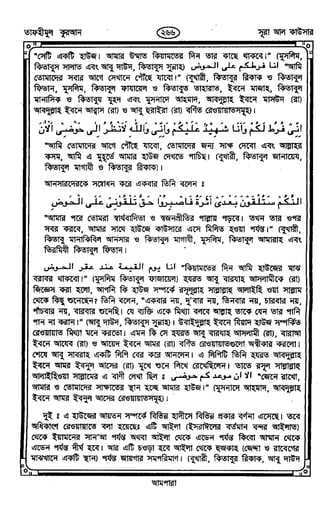 তাফহীমুল কুরআন ২৬৬ সূরা আল কাউসার
"সেটি একটি হাউজ। আমার উম্মাত কিয়ামতের দিন তার কাছে থাকবে।" (মুসলিম,
কিতাবুস সালাত এবং আবু দাউদ, কিতাবুস সুন্নাহ) انا فرطكم على الحوض "আমি
তোমাদের সবার আগে সেখানে পৌঁছে যাবো।" (বুখারী, কিতাবুর রিকাক ও কিতাবুল
ফিতান, মুসলিম, কিতাবুল ফাযায়েল ও কিতাবুত তাহারাত, ইবনে মাজাহ, কিতাবুল
মানাসিক ও কিতাবুয যুহদ এবং মুসনাদে আহমাদ, আবদুল্লাহ ইবনে মাসউদ (রা)
আবদুল্লাহ ইবনে আব্বাস (রা) ও আবু হুরাইরা (রা) বর্ণিত রেওয়ায়াতসমূহ)।
إنى فرط لكم وأنا شهيد عليكم وإنى والله لأنظر إلى حوضى الآن
"আমি তোমাদের আগে পৌঁছে যাবো, তোমাদের জন্য সাক্ষ দেবো এবং আল্লাহর
কসম, আমি এ মুহূর্তে আমার হাউজ দেখতে পাচ্ছি। (বুখারী, কিতাবুল জানায়েয,
কিতাবুল মাগাযী ও কিতাবুর রিকাক)।
আনসারদেরকে সম্বোধন করে একবার তিনি বলেন ঃ
إنكم ستلقون بعدى أثرة فاصبروا حتى تلقونى على الحوض
"আমার পরে তোমরা স্বার্থবাদিতা ও স্বজনপ্রীতির পাল্লায় পড়বে। তখন তার ওপর
সবর করবে, আমার সাথে হাউজে কাউসারে এসে মিলিত হওয়া পর্যন্ত।" (বুখারী,
কিতাবু মানাকিবিল আনসার ও কিতাবুল মাগাযী, মুসলিম, কিতাবুল আমারাহ এবং
তিরমিযী কিতাবুল ফিতান)।
انا يوم القيمة عند عقر الحوض "কিয়ামতের দিন আমি হাউজের মাঝ
বরাবর থাকবো।" (মুসলিম কিতাবুল ফাজায়েল) হযরত আবু বারযাহ আসলামীকে (রা)
জিজ্ঞেস করা হলো, আপনি কি হাউজ সম্পর্কে রসূলুল্লাহ সাল্লাল্লাহু আলাইহি ওয়া সাল্লাম
থেকে কিছু শুনেছেন? তিনি বলেন, "একবার নয়, দু'বার নয়, তিনবার নয়, চারবার নয়,
পাঁচবার নয়, বারবার শুনেছি। যে ব্যক্তি একে মিথ্যা বলবে আল্লাহ তাকে যেন তার পানি
পান না করান।" (আবু দাউদ, কিতাবুস সুন্নাহ)। উবাইদুল্লাহ ইবনে যিয়াদ হাউজ সম্পর্কিত
রেওয়ায়াত মিথ্যা মনে করতো। এমন কি সে হযরত আবু বারযাহ আসলামী (রা), বারাআ
ইবনে আযেব (রা) ও আয়েদ ইবনে আমর (রা) বর্ণিত রেওয়ায়াতগুলো অস্বীকার করলো।
শেষে আবু সাবরাহ একটি লিপি বের করে আনলেন। এ লিপিটি তিনি হযরত আবদুল্লাহ
ইবনে আমর ইবনুল আসের (রা) মুখে শুনে লিখে রেখেছিলেন। তাতে রসূল সাল্লাল্লাহু
আলাইহিওয়া সাল্লামের এ বাণী লেখা ছিল ঃ الا ان موعدكم حوضى "জেনে রাখো,
আমার ও তোমাদের সাক্ষাতের স্থান হচ্ছে আমার হাউজ।" (মুসনাদে আহমাদ, আবদুল্লাহ
ইবনে আমর ইবনুল আসের রেওয়ায়াতসমূহ)।
দুই ঃ এ হাউজের আয়তন সম্পর্কে বিভিন্ন হাদীসে বিভিন্ন প্রকার বর্ণনা এসেছে। তবে
অধিকাংশ রেওয়ায়াতে বলা হয়েছে ঃ এটি আইলা (ইসরাঈলের বর্তমান বন্দর আইলাত)
থেকে ইয়ামনের সান'আ পর্যন্ত অথবা আইলা থেকে এডেন পর্যন্ত কিংবা আম্মান থেকে
এডেন পর্যন্ত দীর্ঘ হবে। আর এটি চওড়া হবে আইলা থেকে হুজফাহ (জেদ্দা ও রাবেগের
মাঝখানে একটি স্থান) পর্যন্ত জায়গার সমপরিমাণ। (বুখারী, কিতাবুর রিকাক, আবু দাউদ
আমপারা